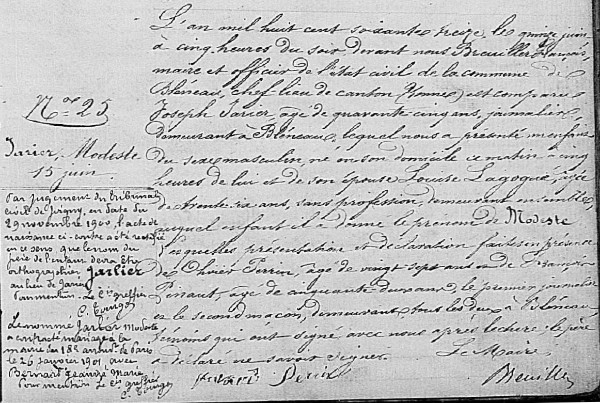 N° 25
Jarier, Modeste
15 juin.
Par jugement du tribunal
civil de Joigny, en date du
29 novembre 1900, l'acte de
naissance ci-contre a été rectifié
en ce sens que le nom du
père de l'enfant devra être
orthographié Jarlier
au lieu de Jarier
Pour mention. Le cis greffier
Le nommé Jarlier Modeste
a contracté mariage à la
mairie du 18e arrondt de Paris
le 26 janvier 1901 avec
Bernard Jeanne Marie
Pour mention Le cis greffier
L'an mil huit cent soixante treize, le quinze juin
à cinq heures du soir devant nous Breuiller François
maire et officier de l'état civil de la commune de
Bléneau, chef lieu de canton (Yonne) est comparu
Joseph Jarier, âgé de quarante cinq ans, journalier
demeurant à Bléneau, lequel nous a présenté un enfant
du sexe masculin, né en son domicile ce matin à cinq
heures de lui et de son épouse Louise Lagogué, âgée
de trente six ans, sans profession, demeurant ensemble,
auquel enfant il a donné le prénom de Modeste
Lesquelles présentation et déclaration faites en présence
de Perrin, âgé de vingt sept ans et de François
Pinault, âgé de cinquante deux ans, le premier journalier
et le second maçon, demeurant tous les deux à Bléneau,
témoins qui ont signé avec nous après lecture, le père
a déclaré ne savoir signer.
Le Maire
Perin
Breuiller